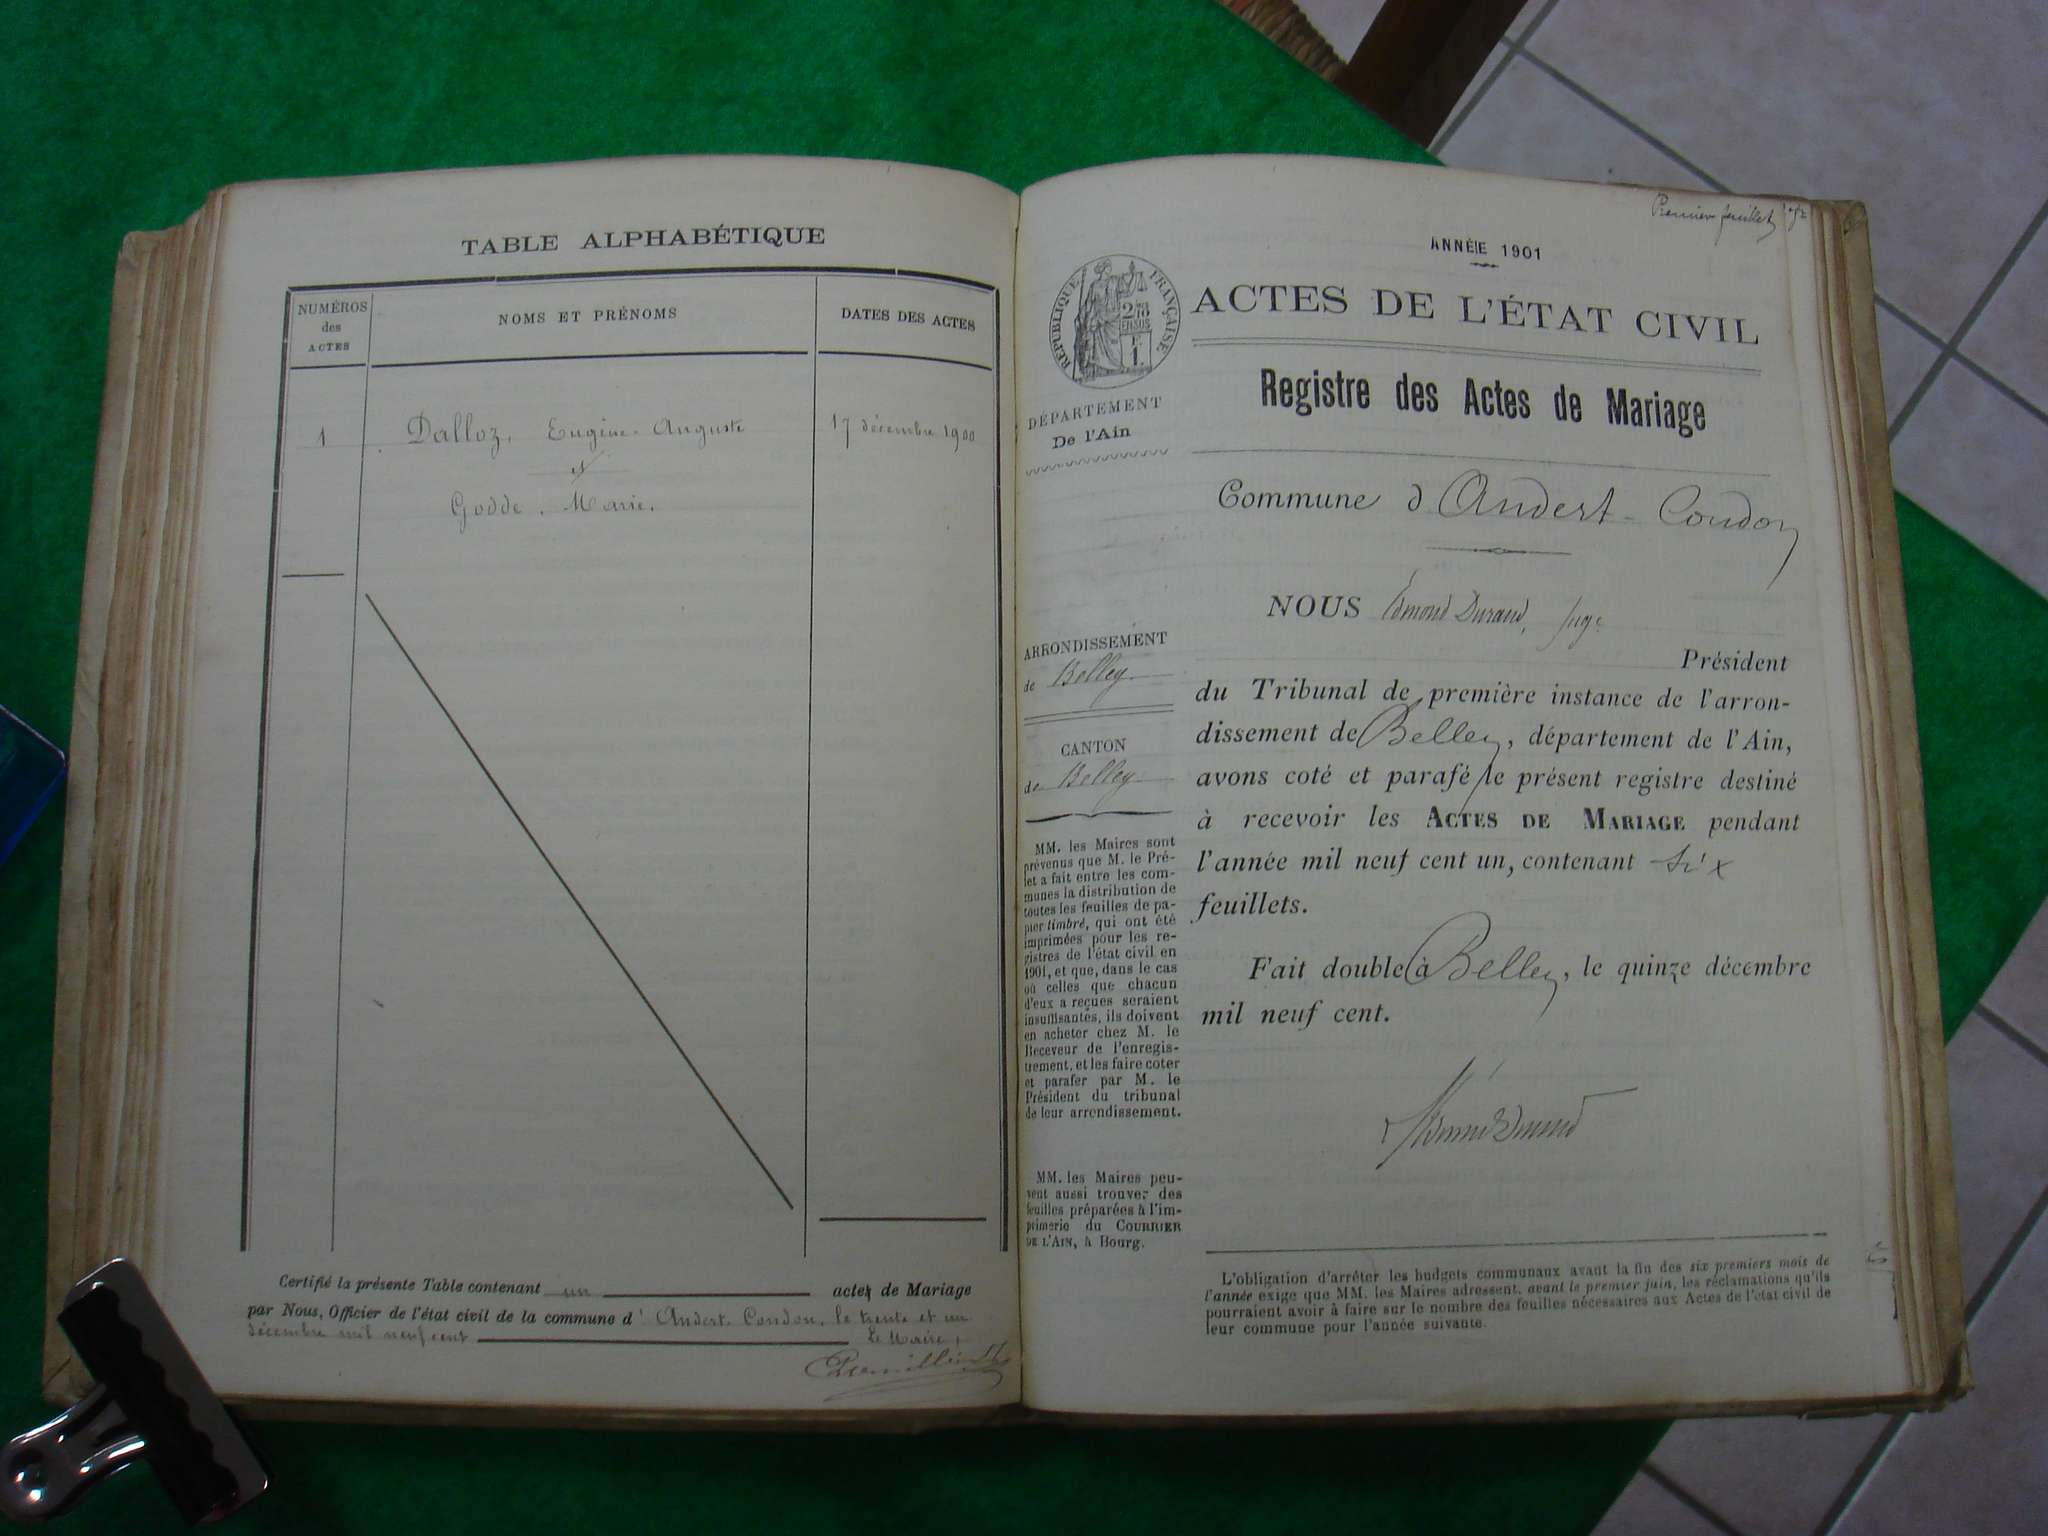 TABLE ALPHABÉTIQUE
NUMÉROS
des
ACTES
NOMS ET PRÉNOMS
DATES DES ACTES
1
Dalloz, Eugène-Auguste
17 décembre 1900
et
Godde, Marie.
Certifié la présente Table contenant un actes de Mariage
par Nous, Officier de l'état civil de la commune d'Andert-Condon, le trente et un
décembre mil neuf cent Le Maire,
Premier feuillet
ANNÉE 1901
RÉPUBLIQUE FRANÇAISE
ACTES DE L'ÉTAT CIVIL
Registre des Actes de Mariage
DÉPARTEMENT
De l'Ain
Commune d'Andert-Condon
ARRONDISSEMENT
de Belley
CANTON
de Belley
MM. les Maires sont
prévenus que M. le Pré-
fet a fait entre les com-
munes la distribution de
toutes les feuilles de pa-
pier timbré, qui ont été
imprimées pour les re-
gistres de l'état civil en
1901, et que, dans le cas
où celles que chacun
d'eux a reçues seraient
insuffisantes, ils doivent
en acheter chez M. le
Receveur de l'enregis-
trement, et les faire coter
et parafer par M. le
Président du tribunal
de leur arrondissement.
MM. les Maires peu-
vent aussi trouver des
feuilles préparées à l'im-
primerie du COURRIER
DE L'AIN, à Bourg.
NOUS Edmond Durand, Juge
Président
du Tribunal de première instance de l'arron-
dissement de Belley, département de l'Ain,
avons coté et parafé le présent registre destiné
à recevoir les ACTES DE MARIAGE pendant
l'année mil neuf cent un, contenant six
feuillets.
Fait double à Belley, le quinze décembre
mil neuf cent.
L'obligation d'arrêter les budgets communaux avant la fin des six premiers mois de
l'année exige que MM. les Maires adressent, avant le premier juin, les réclamations qu'ils
pourraient avoir à faire sur le nombre des feuilles nécessaires aux Actes de l'état civil de
leur commune pour l'année suivante.